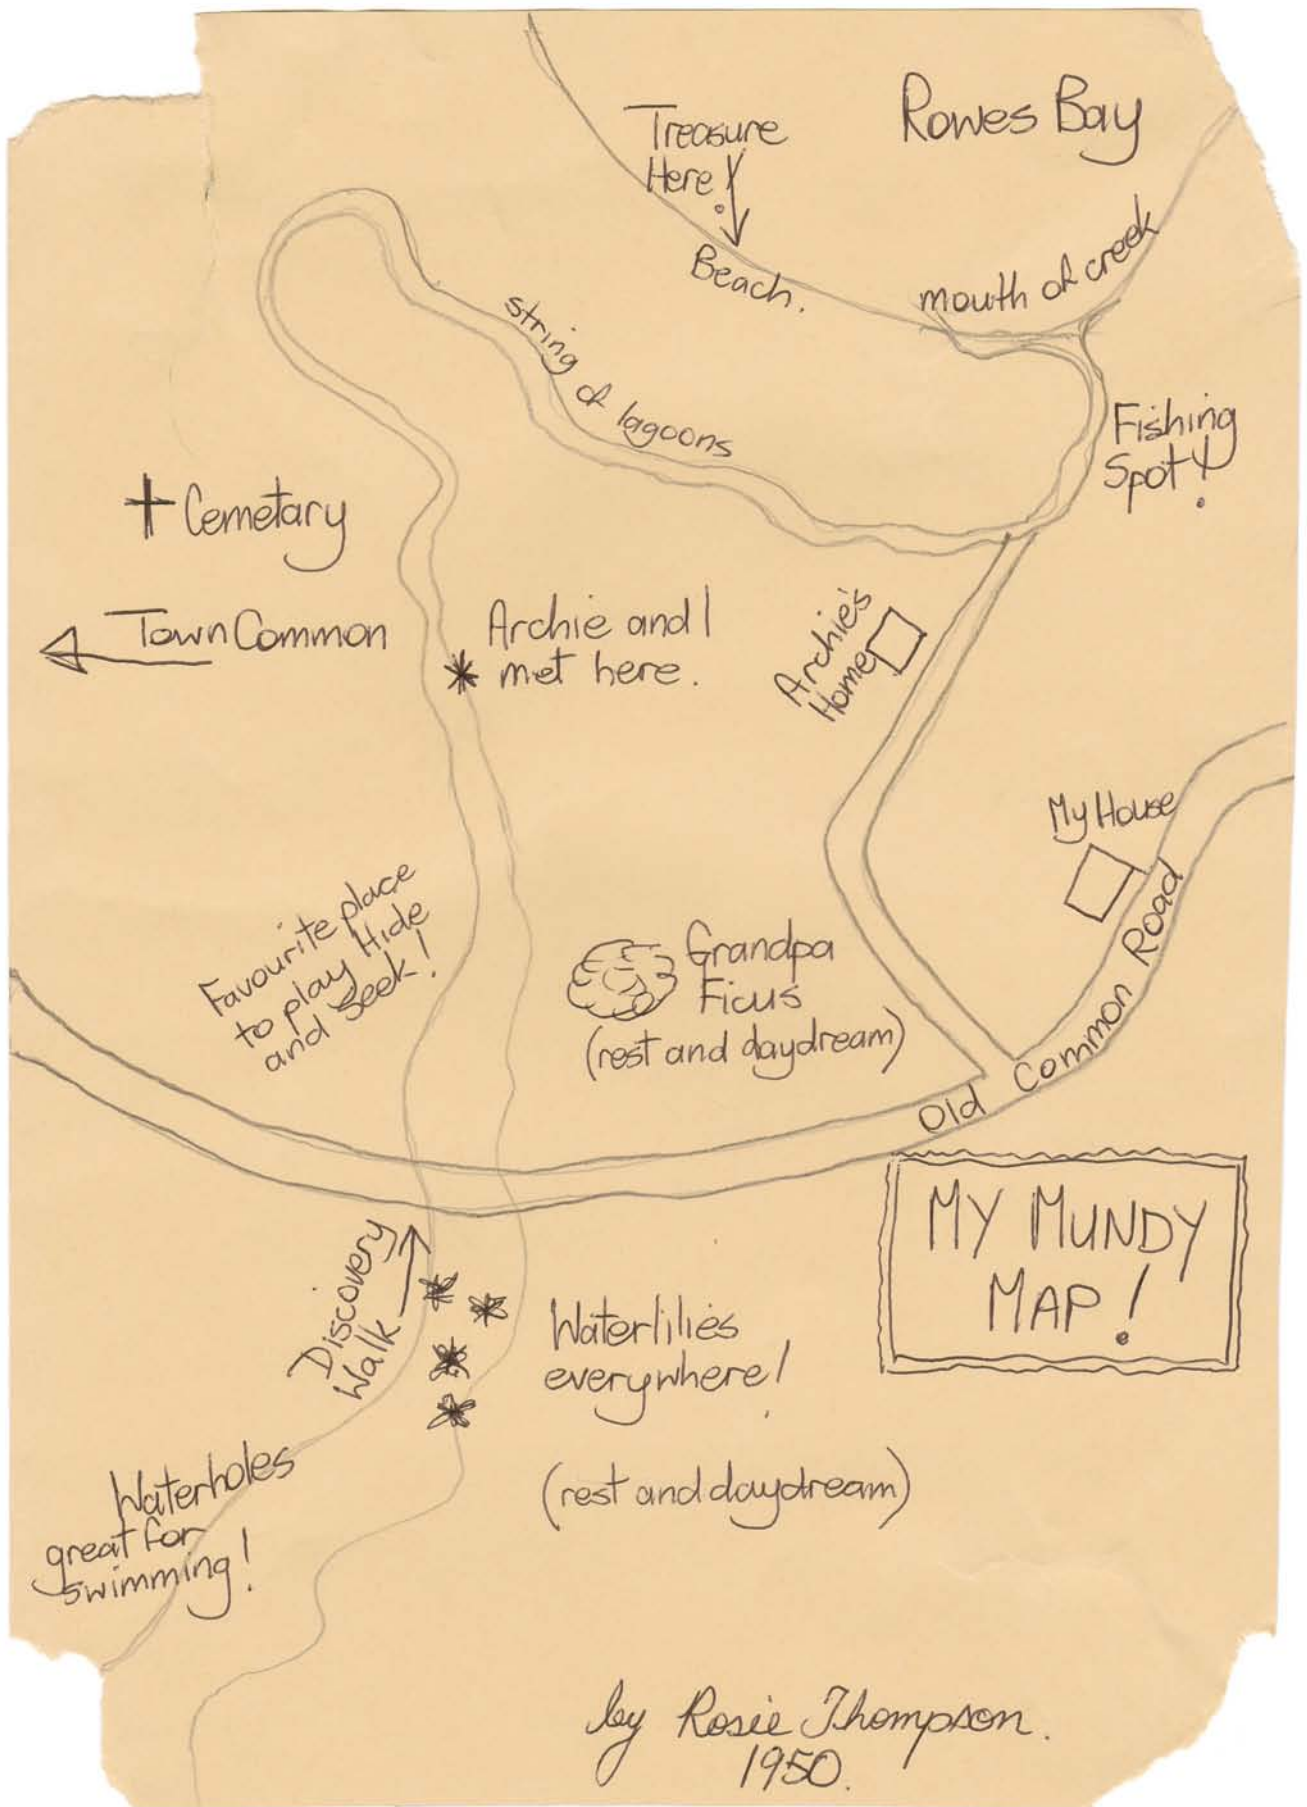 Rowes Bay
Treasure
Here!
Beach.
mouth of creek
string of lagoons
Fishing
Spot!
Cemetary
Town Common
Archie and I
met here.
Archie's
Home
My House
Favourite place
to play Hide
and Seek!
Grandpa
Ficus
(rest and daydream)
Old Common Road
MY MUNDY
MAP!
Discovery
Walk
Waterlilies
everywhere!
(rest and daydream)
Waterholes
great for
swimming!
by Rosie Thompson.
1950.